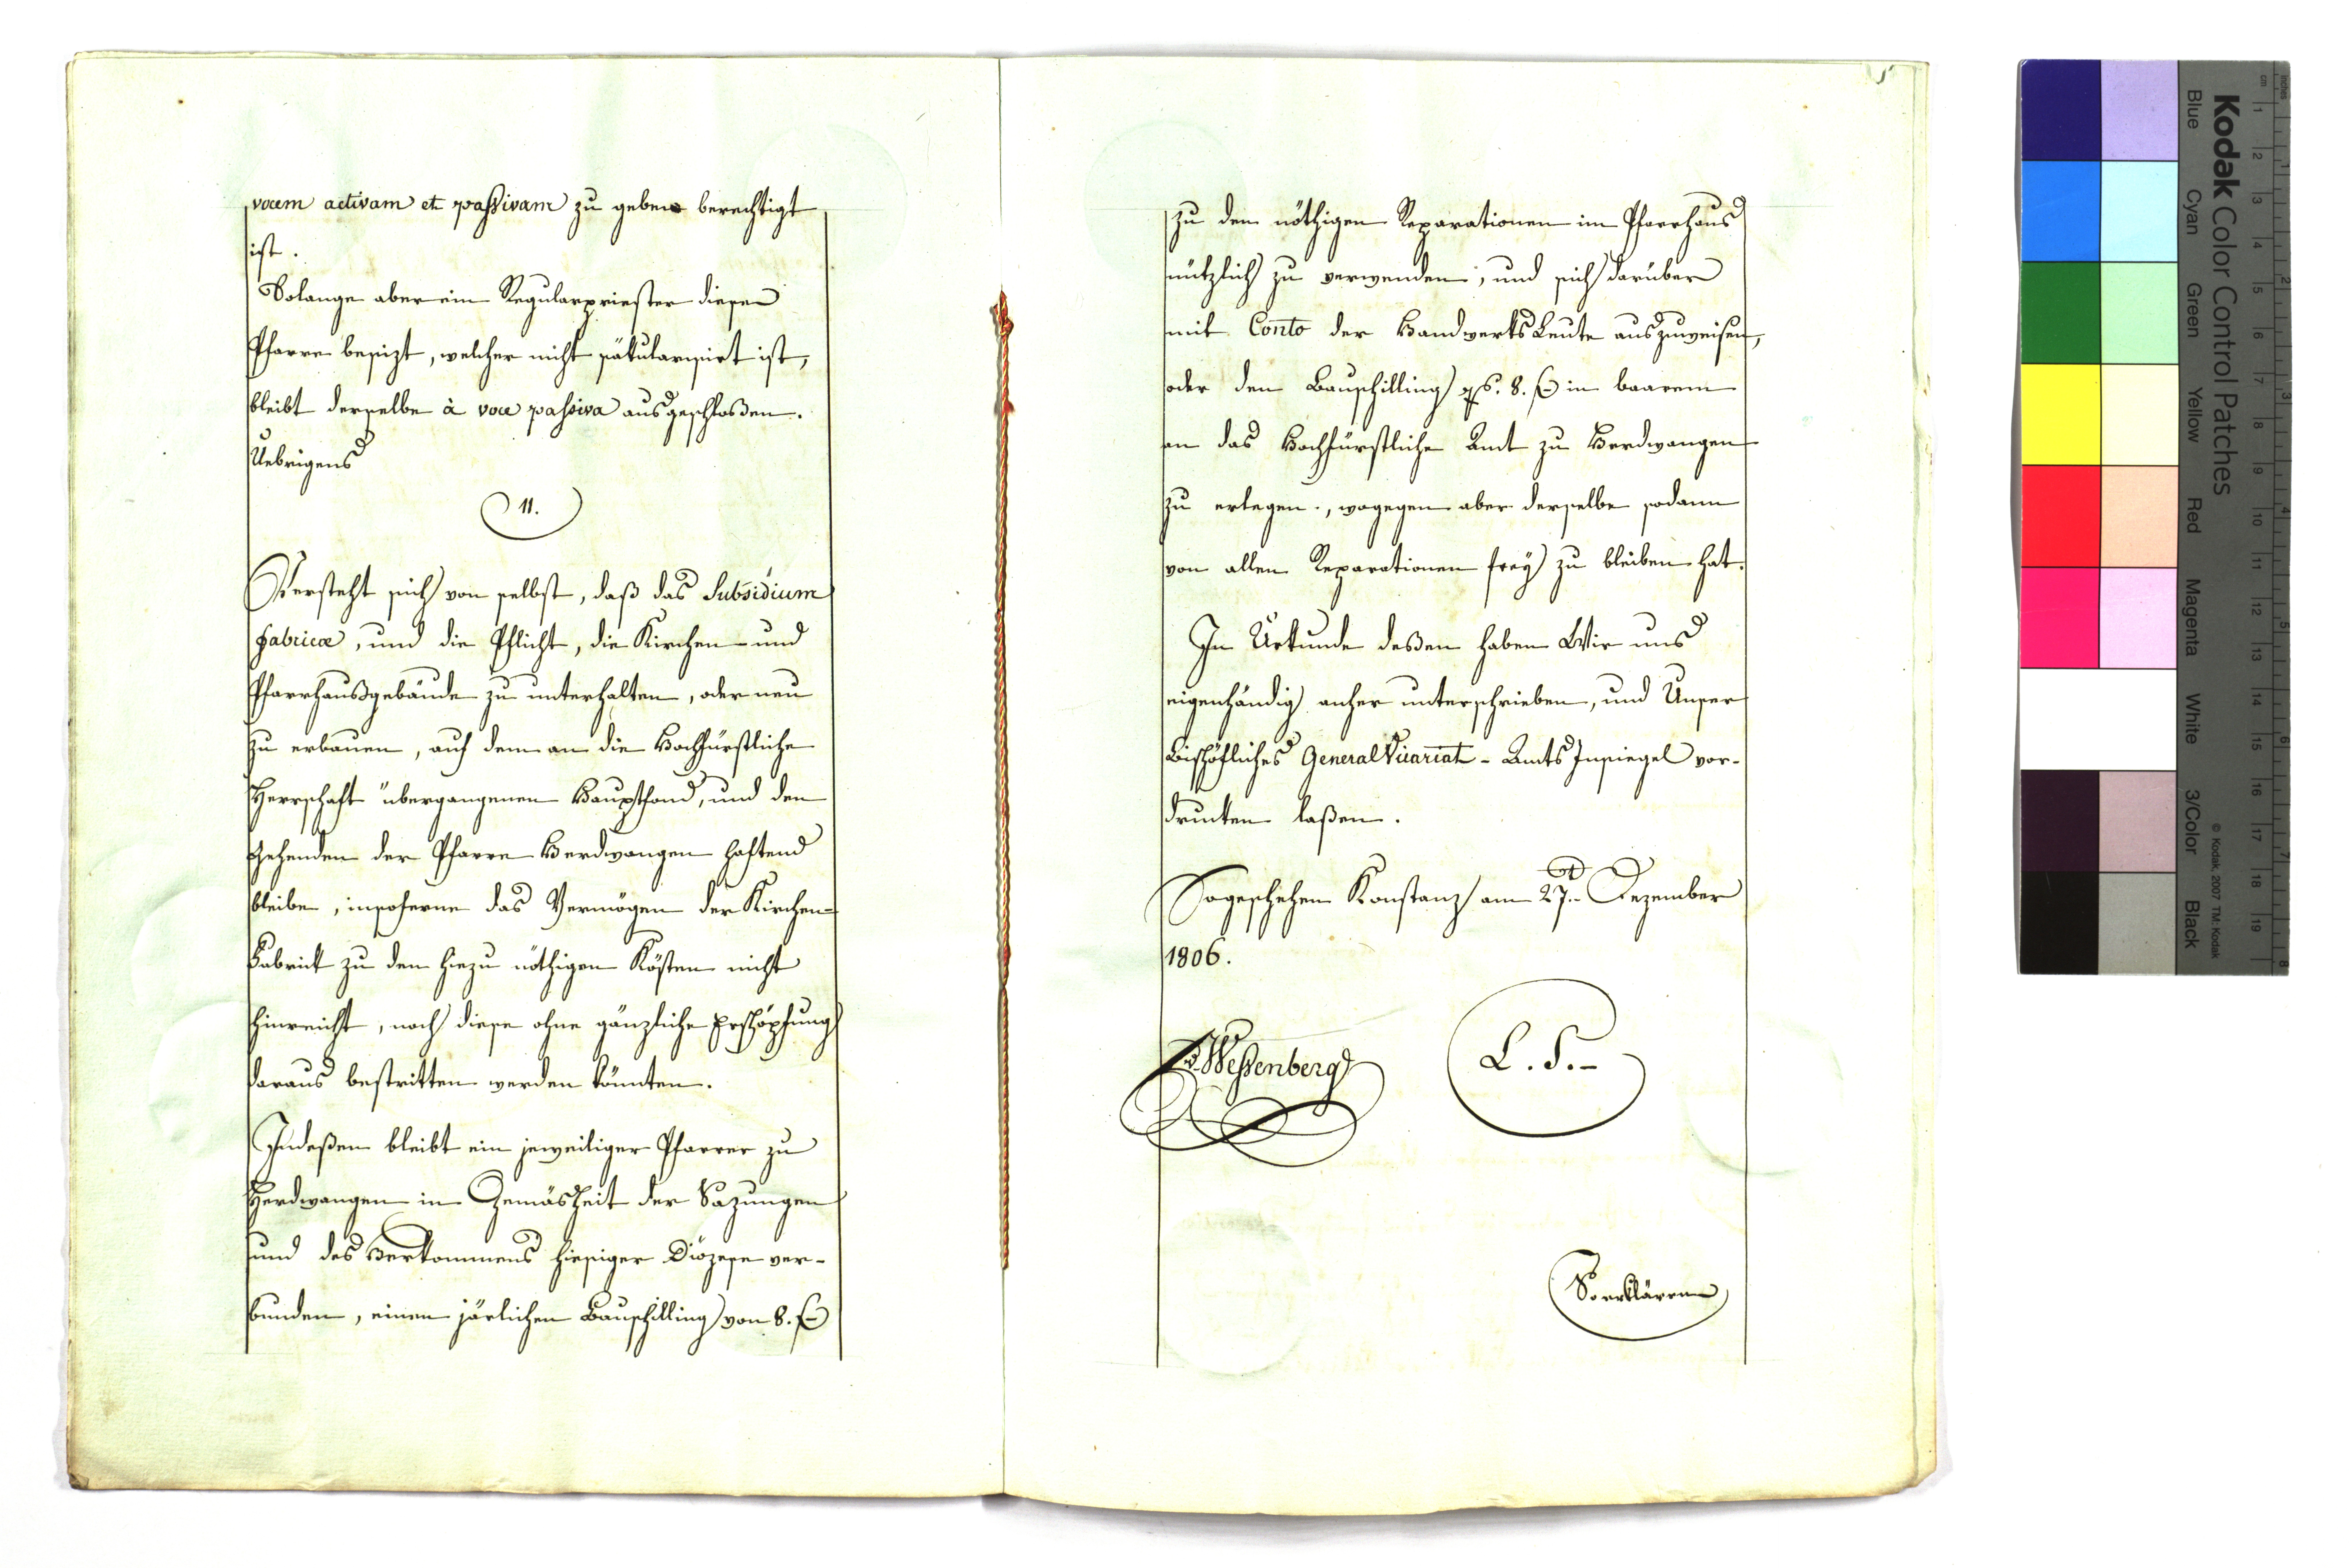 vocem activam et passivam zu geben berechtigt
ist.
Solange aber ein Regularpriester diese
Pfarre besizt, welcher nicht säkularisirt ist,
bleibt derselbe à voce passiva ausgeschloßen.
Uebrigens
11.
Versteht sich von selbst, daß das Subsidium
fabricæ, und die Pflicht, die Kirchen- und
Pfarrhausgebäude zu unterhalten, oder neu
zu erbauen, auf dem an die Hochfürstliche
Herrschaft übergangenen Hauptfond, und den
Zehenden der Pfarre Herdwangen haftend
bleibe, insoferne das Vermögen der Kirchen-
Fabrick zu den hiezu nöthigen Kösten nicht
hinreicht, noch diese ohne gänzliche Erschöpfung
daraus bestritten werden könnten.
Indeßen bleibt ein jeweiliger Pfarrer zu
Herdwangen in Gemäsheit der Sazungen
und des Herkommens hiesiger Diözese ver-
bunden, einen järlichen Bauschilling von 8. f
zu den nöthigen Reparationen im Pfarrhaus
nützlich zu verwenden, und sich darüber
mit Conto der Handwerks Leute auszuweisen,
oder den Bauschilling 8. f in baarem
an das Hochfürstliche Amt zu Herdwangen
zu erlegen, wogegen aber derselbe sodann
von allen Reparationen frey zu bleiben hat.
In Urkunde deßen haben Wir uns
eigenhändig anher unterschrieben, und Unser
Bischöfliches General Vicariat - Amts Insiegel vor-
drucken laßen.
So geschehen Konstanz am 27. Dezember
1806.
v. Wessenberg
L. S.-
So erklären
Kodak Color Control Patches
Blue Cyan Green Yellow Red Magenta White 3/Color Black
© Kodak, 2007 TM: Kodak
cm 1 2 3 4 5 6 7 8 9 10 11 12 13 14 15 16 17 18 19
inches 1 2 3 4 5 6 7 8